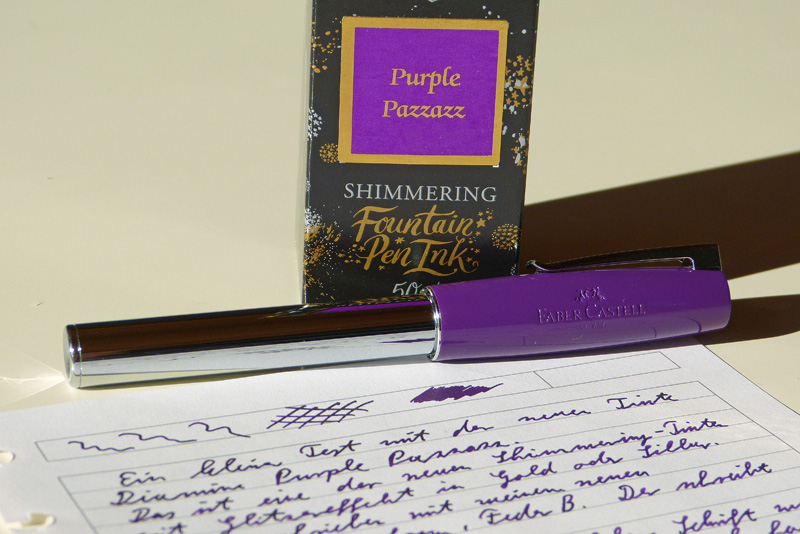 Purple
Pazzazz
SHIMMERING
Fountain
Pen Ink
50
FABER CASTELL
Ein klein Test mit der neuen Tinte
Diamine Purple Pazzazz.
Das ist eine der neuen Shimmering-Tinten
mit Glitzereffekt in Gold oder Silber.
mit meinem neuen
Feder B. Der schreibt
Schrift